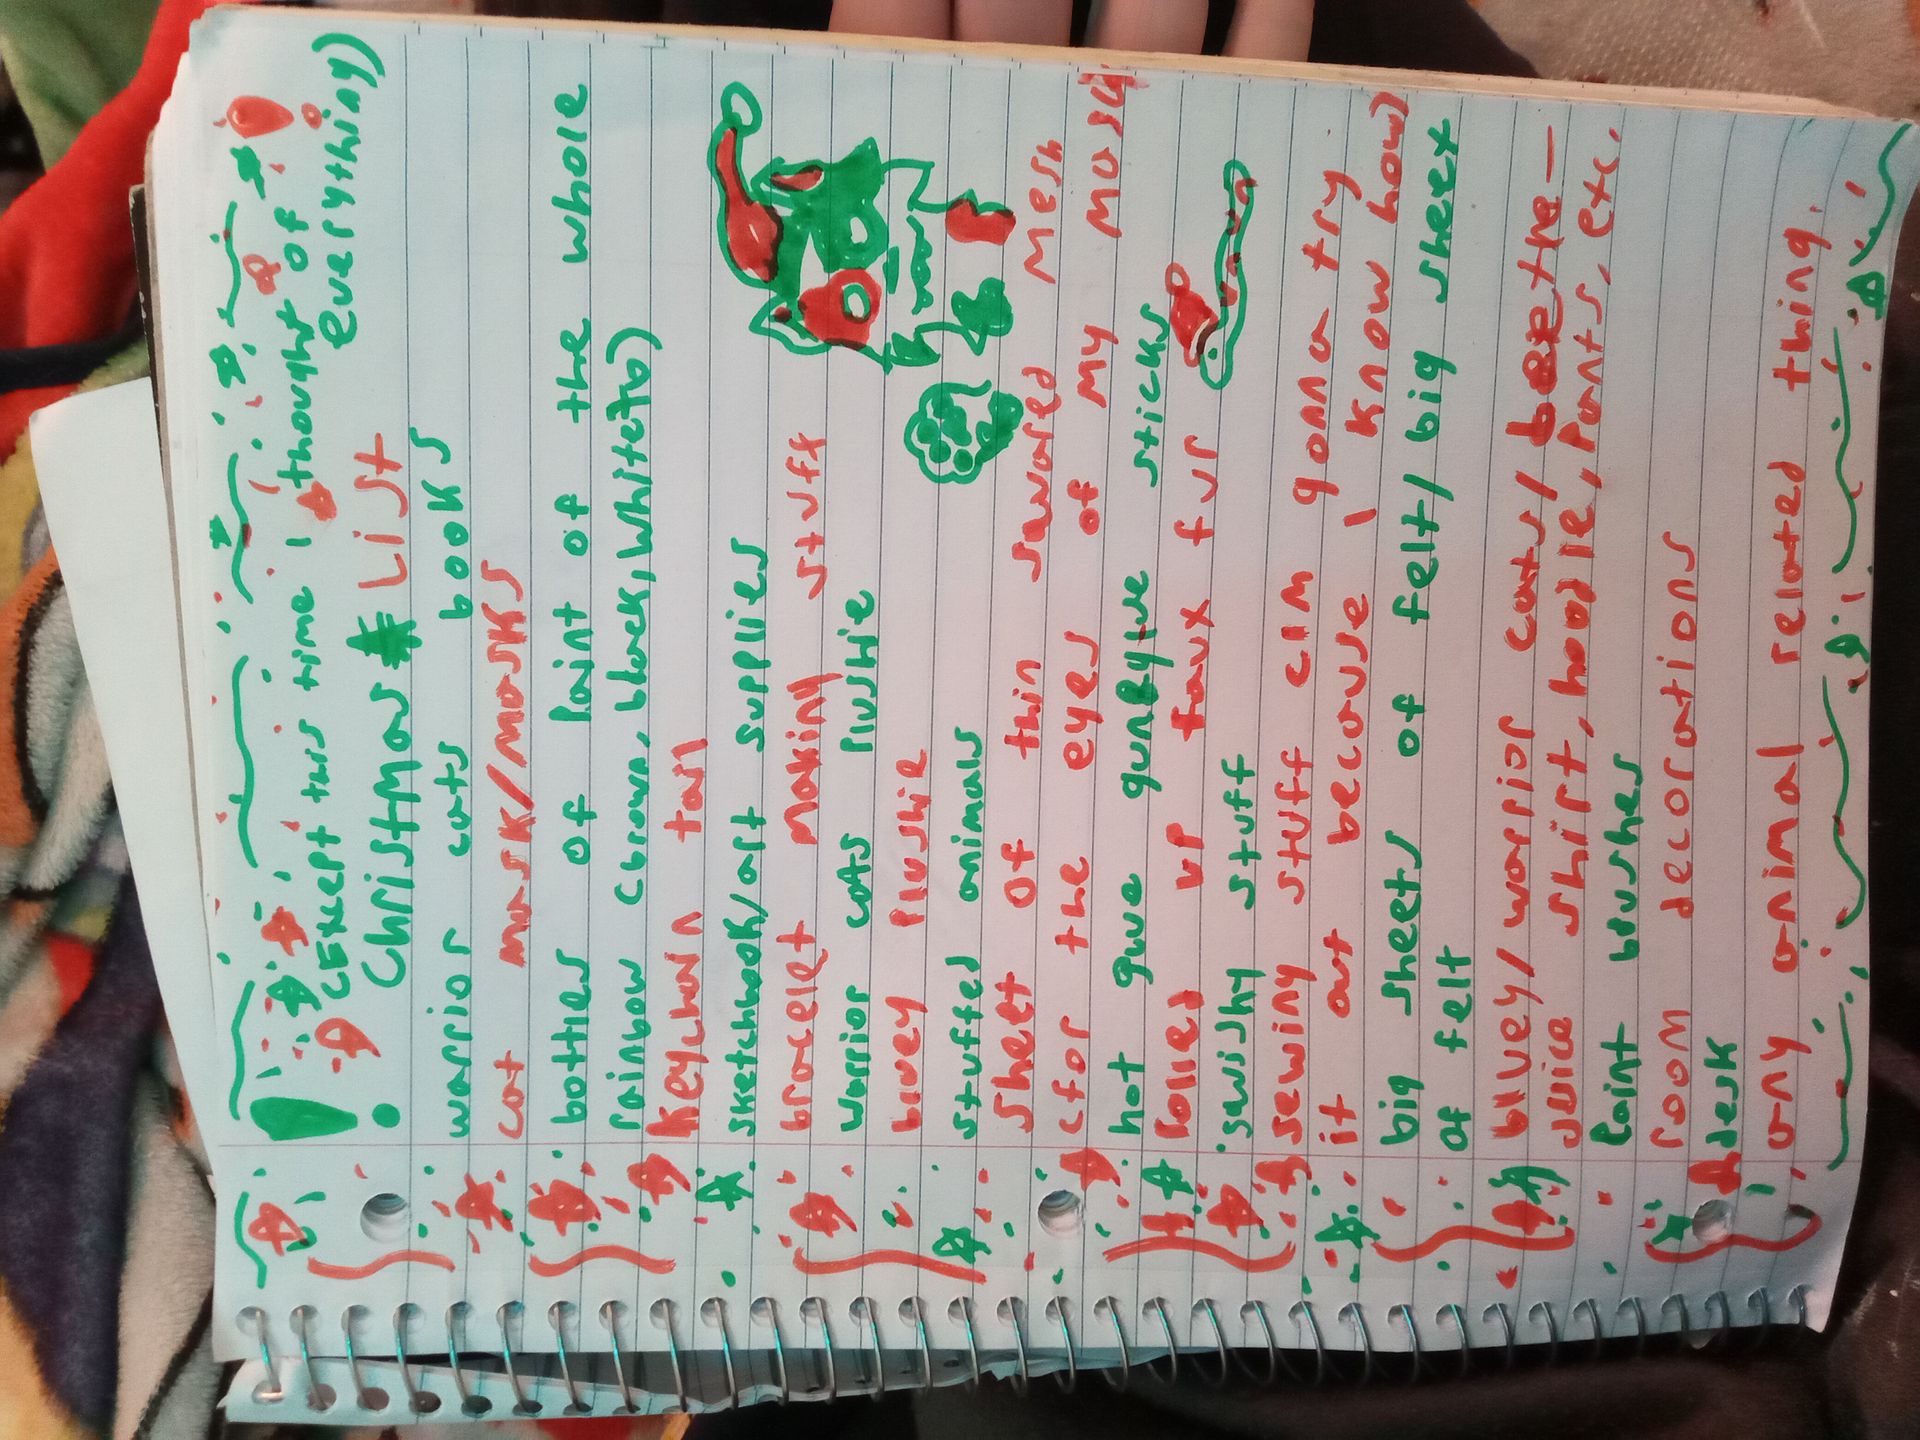 (Except this time I thought of
everything)
Christmas List
warrior cats books
cat mask/masks
bottles of paint of the whole
rainbow (brown, black, white to)
keychain tail
sketchbook/art supplies
bracelet making stuff
warrior cats plushie
bluey plushie
stuffed animals
sheet of thin squared mesh
(for the eyes of my mask)
hot glue gun sticks
rolled up faux fur
squishy stuff
sewing stuff (im gonna try
it out because I know how)
big sheets of felt/big sheet
of felt
bluey/warrior cats/
juice shirt, hoodie, pants, etc.
paint brushes
room decorations
desk
any animal related thing.